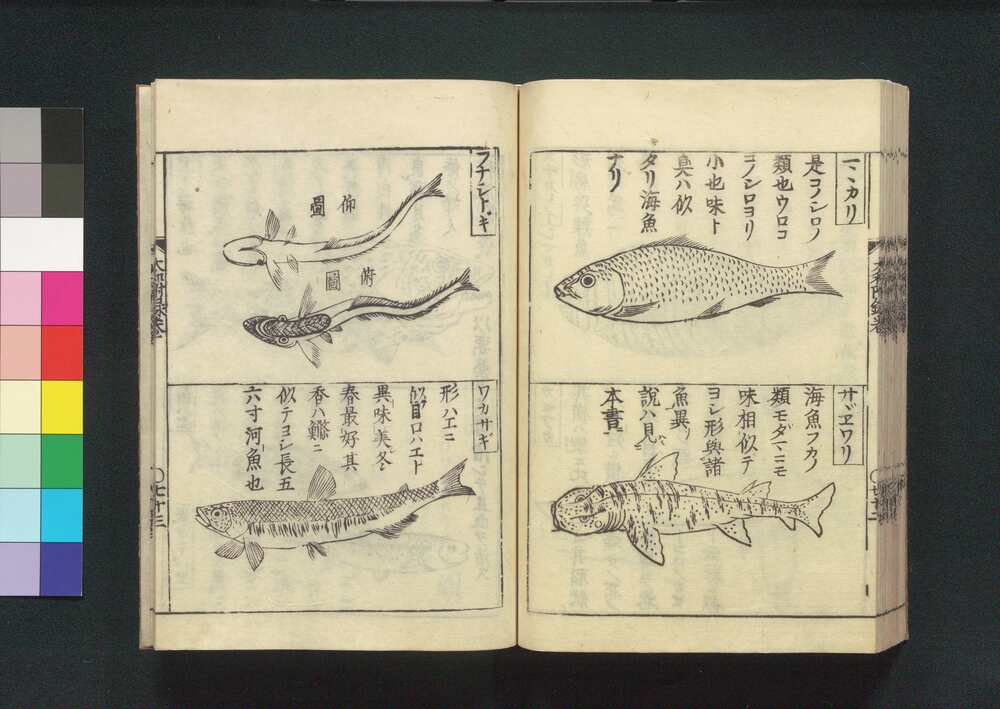 マヽカリ
是コノシロノ
類也ウロコ
コノシロヨリ
小也味ト
臭ハ似
タリ海魚
ナリ
サヾヱワリ
海魚フカノ
類モダマニモ
味相似テ
ヨシ形與諸
魚異リ
說ハ見
本書
フナシトヽギ
仰
圖
俯
圖
ワカサギ
形ハエニ
似目口ハエト
異味美冬
春最好其
香ハ鱖ニ
似テヨシ長五
六寸河魚也
七十三